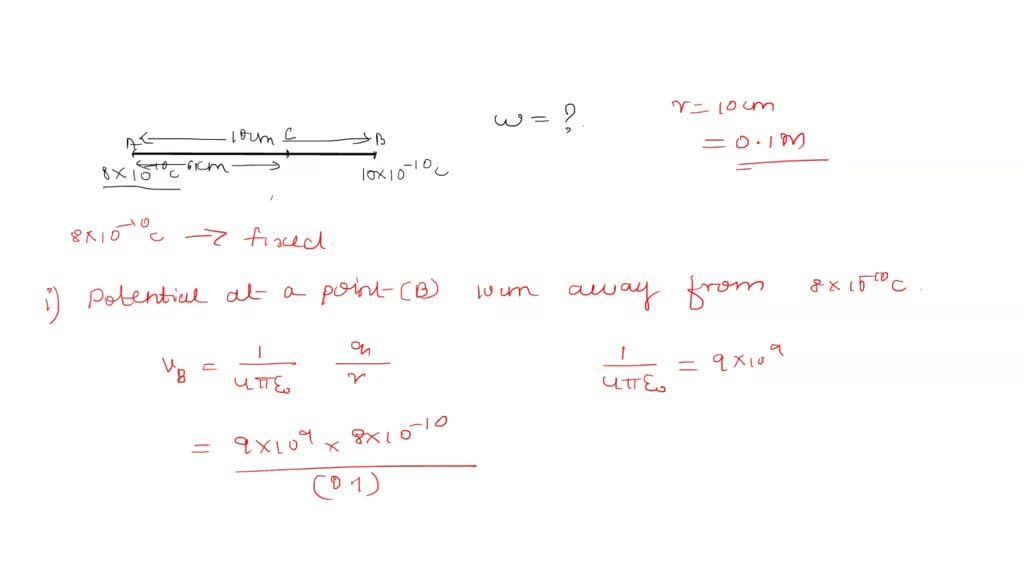 w = ?
r = 10 cm
= 0.1 m
A 10cm C B
8×10⁻¹⁰C 6cm 10×10⁻¹⁰C
8×10⁻¹⁰C → fixed.
i) Potential at a point (B) 10cm away from 8×10⁻¹⁰C.
V_B = 1/4πε₀ q/r
1/4πε₀ = 9×10⁹
= 9×10⁹ × 8×10⁻¹⁰
(0.1)